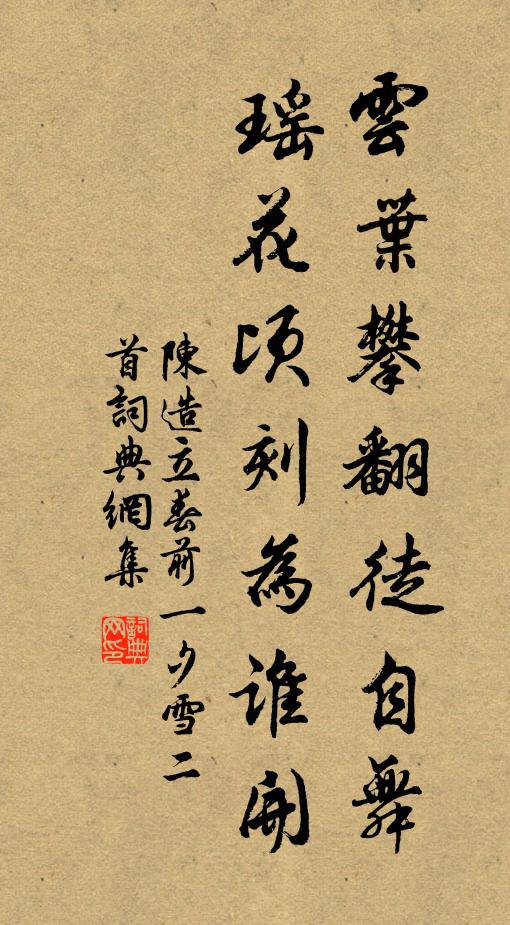 雲葉攀翻徒自舞
瑶花頃刻為誰開
陳造立春前一夕雪二
首詞典網集
詞典网印